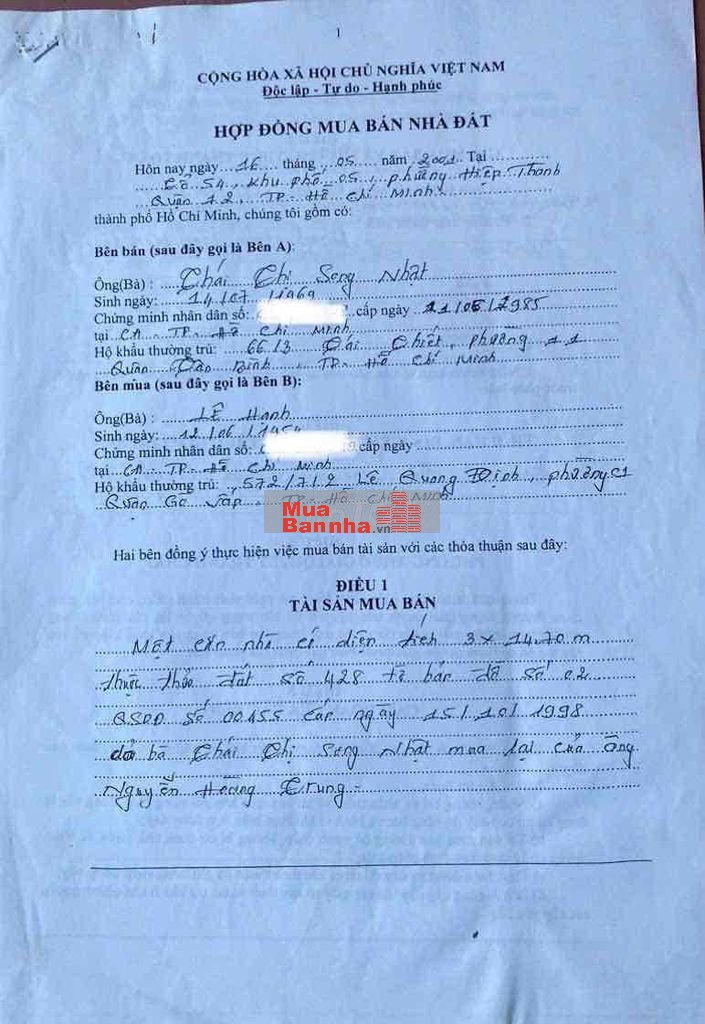 1
CỘNG HÒA XÃ HỘI CHỦ NGHĨA VIỆT NAM
Độc lập - Tự do - Hạnh phúc
HỢP ĐỒNG MUA BÁN NHÀ ĐẤT
Hôn nay ngày 16 tháng 05 năm 2001 Tại
Lô 54, khu phố 05, phường Hiệp Thành
Quận 12, TP. Hồ Chí Minh
thành phố Hồ Chí Minh, chúng tôi gồm có:
Bên bán (sau đây gọi là Bên A):
Ông(Bà) : Chái Chị Seng Nhật
Sinh ngày: 14/07/1969
Chứng minh nhân dân số: cấp ngày 11/05/1985
tại CA. TP. Hồ Chí Minh
Hộ khẩu thường trú: 66/3 Phường 11
Quận Tân Bình, TP. Hồ Chí Minh
Bên mua (sau đây gọi là Bên B):
Ông(Bà) : Lê Hạnh
Sinh ngày: 12/06/1954
Chứng minh nhân dân số: cấp ngày
tại CA. TP. Hồ Chí Minh
Hộ khẩu thường trú: 572/7/2 Lê Quang Định, phường 01
Quận Gò Vấp, TP. Hồ Chí Minh
Mua
Bannha.vn
Hai bên đồng ý thực hiện việc mua bán tài sản với các thỏa thuận sau đây:
ĐIỀU 1
TÀI SẢN MUA BÁN
Một căn nhà có diện tích 3 x 14.70 m
thuộc thửa đất số 428 tờ bản đồ số 02
QSDĐ số 00155 cấp ngày 15/10/1998
do bà Chái Chị Seng Nhật mua lại của Ông
Nguyễn Hoàng Trung